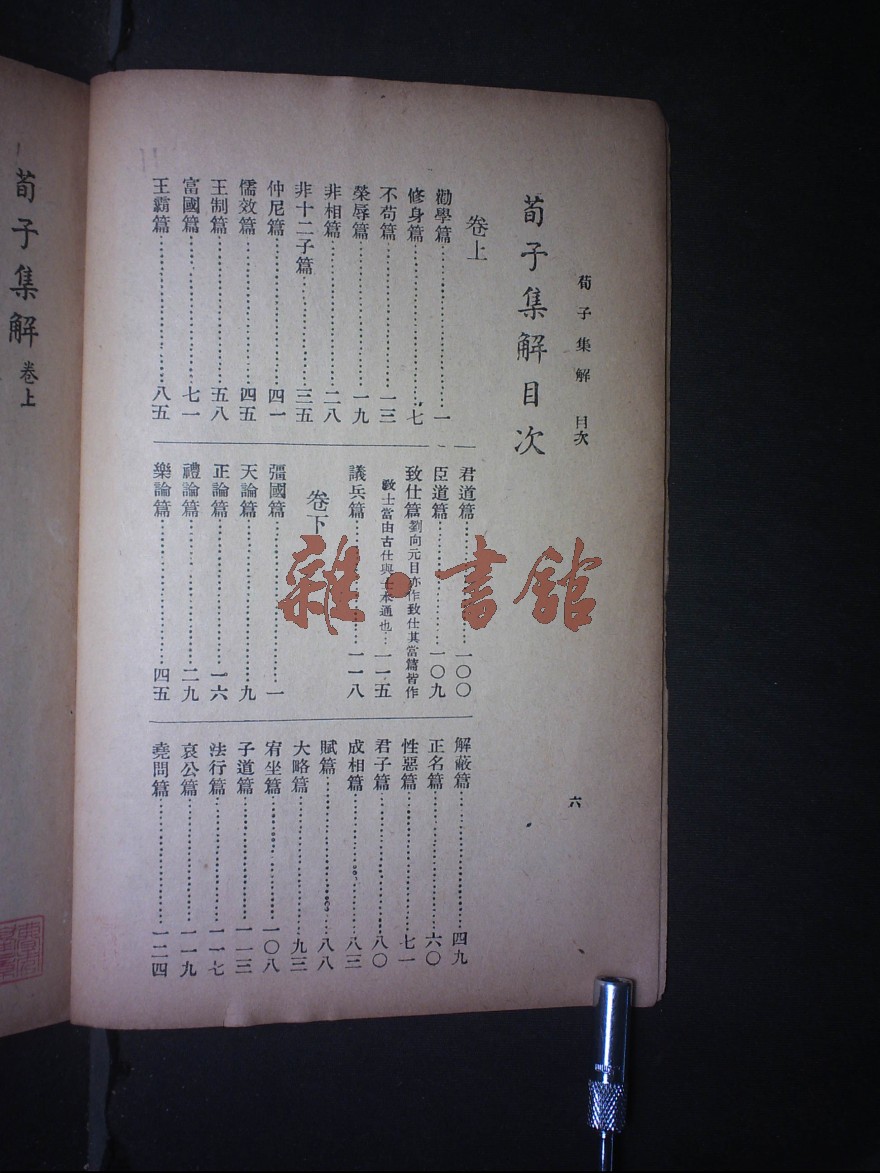 荀子集解 目次
六
荀子集解目次
卷上
勸學篇 一
修身篇 七
不苟篇 一三
榮辱篇 一九
非相篇 二八
非十二子篇 三五
仲尼篇 四一
儒效篇 四五
王制篇 五八
富國篇 七一
王霸篇 八五
君道篇 一〇〇
臣道篇 一〇九
致仕篇 劉向元目亦作致仕其當篇皆作
致士當由古仕與士本通也 一一五
議兵篇 一一八
卷下
彊國篇 一
天論篇 九
正論篇 一六
禮論篇 二九
樂論篇 四五
解蔽篇 四九
正名篇 六〇
性惡篇 七一
君子篇 八〇
成相篇 八三
賦篇 八八
大略篇 九三
宥坐篇 一〇八
子道篇 一一三
法行篇 一一七
哀公篇 一一九
堯問篇 一二四
荀子集解 卷上
雜·書館